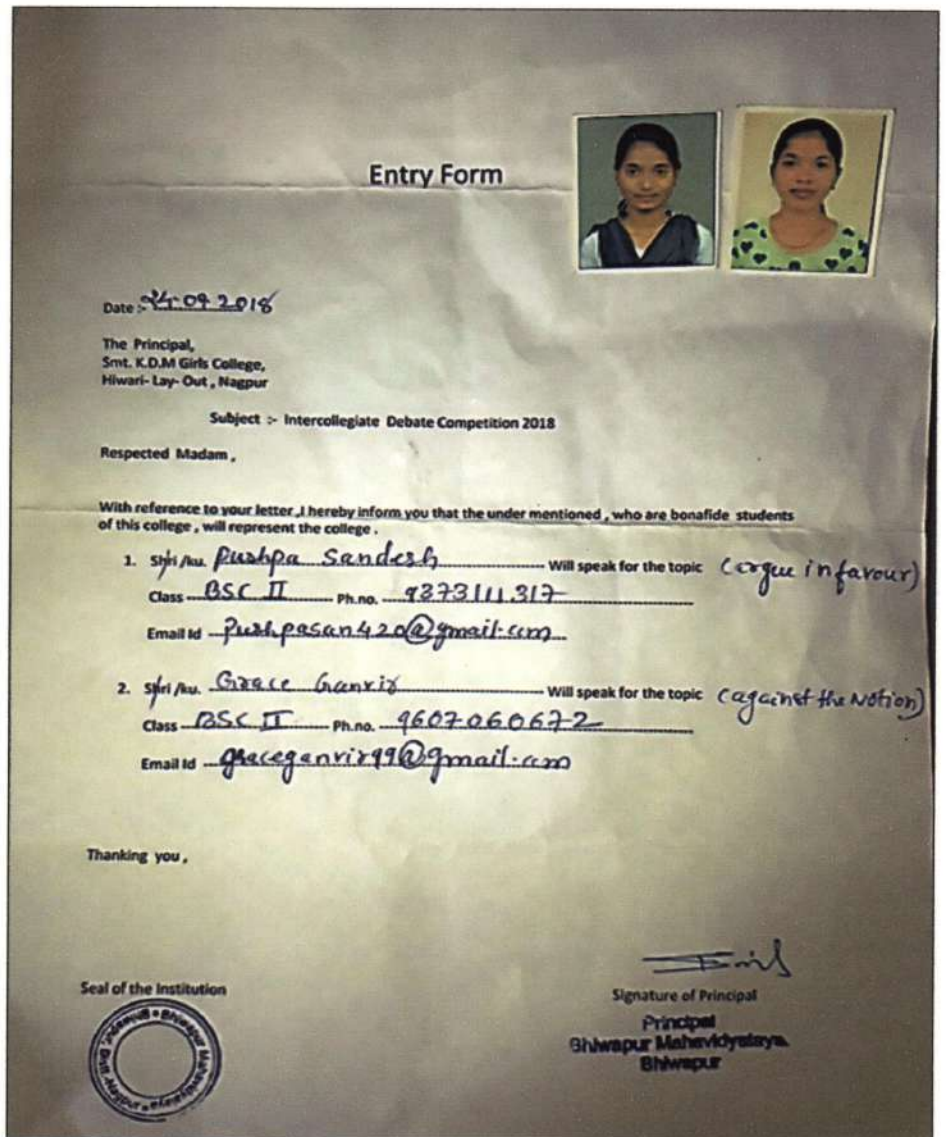 Entry Form
Date :- 24.09 2018
The Principal,
Smt. K.D.M Girls College,
Hiwari- Lay- Out , Nagpur
Subject :- Intercollegiate Debate Competition 2018
Respected Madam ,
With reference to your letter ,I hereby inform you that the under mentioned , who are bonafide students
of this college , will represent the college .
1. Shri /ku. Pushpa Sandesh Will speak for the topic (argue in favour)
Class BSC II Ph.no. 9373111317
Email Id Pushpasan420@gmail.com
2. Shri /ku. Grace Ganvir Will speak for the topic (against the Notion)
Class BSC II Ph.no. 9607060672
Email Id graceganvir99@gmail.com
Thanking you ,
Seal of the Institution
Signature of Principal
Principal
Bhiwapur Mahavidyalaya.
Bhiwapur
Bhiwapur Mahavidyalaya Bhiwapur, Distt. Nagpur